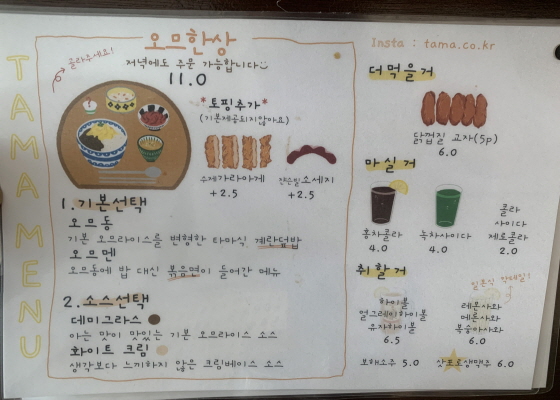 TAMA MENU
골라주세요!
오므한상
저녁에도 주문 가능합니다
11.0
*토핑추가*
(기본제공되지않아요)
수제가라아게
+2.5
소세지
+2.5
1. 기본선택
오므동
기본 오므라이스를 변형한 타마식 계란덮밥
오므멘
오므동에 밥 대신 볶음면이 들어간 메뉴
2. 소스선택
데미그라스
아는 맛이 맛있는 기본 오므라이스 소스
화이트 크림
생각보다 느끼하지 않은 크림베이스 소스
Insta : tama.co.kr
더먹을거
닭껍질 교자(5p)
6.0
마실거
홍차콜라
4.0
녹차사이다
4.0
콜라
사이다
제로콜라
2.0
취할거
하이볼
얼그레이하이볼
유자하이볼
6.5
레몬사와
메론사와
복숭아사와
6.0
보해소주 5.0
삿포로생맥주 6.0